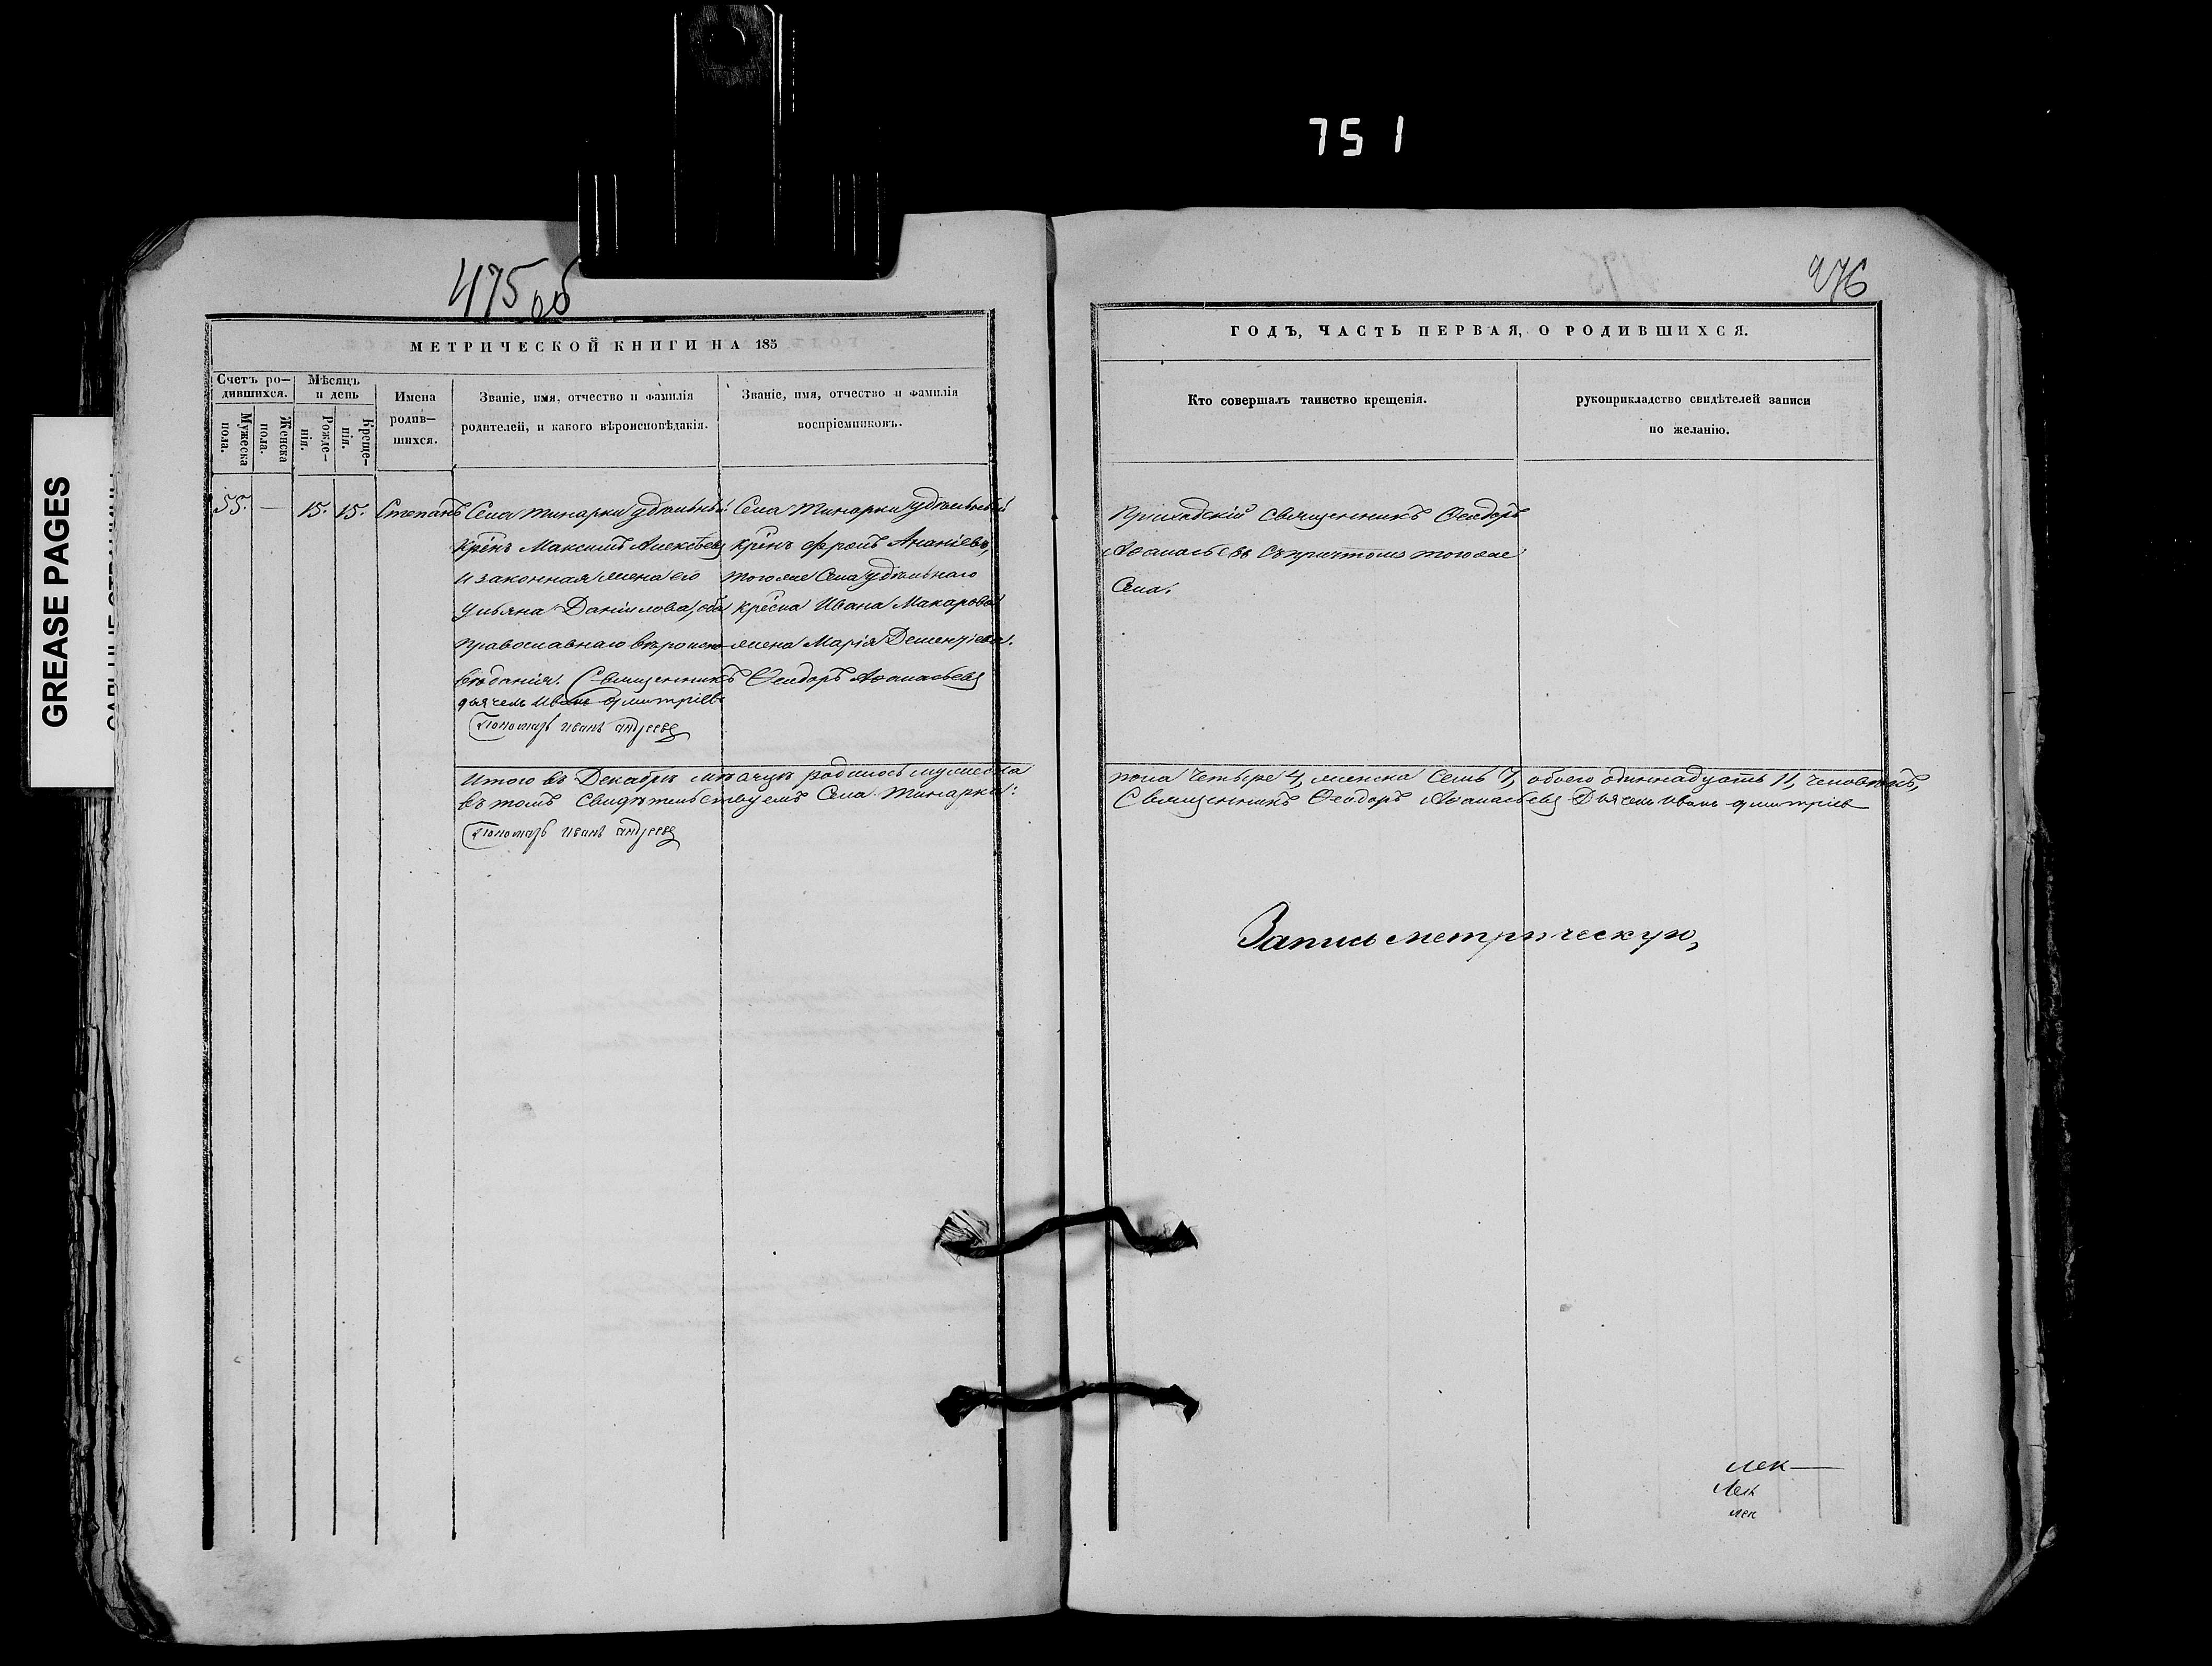 751
GREASE PAGES
475 об
МЕТРИЧЕСКОЙ КНИГИ НА 185
Счетъ ро-
дившихся.
Мужеска
пола.
Женска
пола.
Мѣсяцъ
и день
Рожде-
нія.
Креще-
нія.
Имена
родив-
шихся.
Званіе, имя, отчество и фамилія
родителей, и какого вѣроисповѣданія.
Званіе, имя, отчество и фамилія
воспріемниковъ.
55. — 15. 15. Степанъ
Села Тинарки удѣльный
крѣнъ Максимъ Алексѣевъ
и законная жена его
Ульяна Данилова, оба
православнаго вѣроиспо-
вѣданія. Священникъ Ѳеодоръ Аѳанасьевъ
дьячекъ Иванъ Дмитріевъ
Пономарь Иванъ Андреевъ
Села Тинарки удѣльный
крѣнъ Ананіевъ,
тогоже Села удѣльнаго
крѣсна Ивана Макарова
жена Марія Дементіева.
Итого въ Декабрѣ мѣсяцѣ родилось мужеска
въ томъ свидѣтельствуемъ Села Тинарки:
Пономарь Иванъ Андреевъ
476
ГОДЪ, ЧАСТЬ ПЕРВАЯ, О РОДИВШИХСЯ.
Кто совершалъ таинство крещенія.
рукоприкладство свидѣтелей записи
по желанію.
Приходскій Священникъ Ѳеодоръ
Аѳанасьевъ съ причтомъ тогоже
Села.
пола четыре 4, женска семь 7, обоего одиннадцать 11, человѣкъ,
Священникъ Ѳеодоръ Аѳанасьевъ Дьячекъ Иванъ Дмитріевъ
Запись метрическую,
лек
Лек
лек